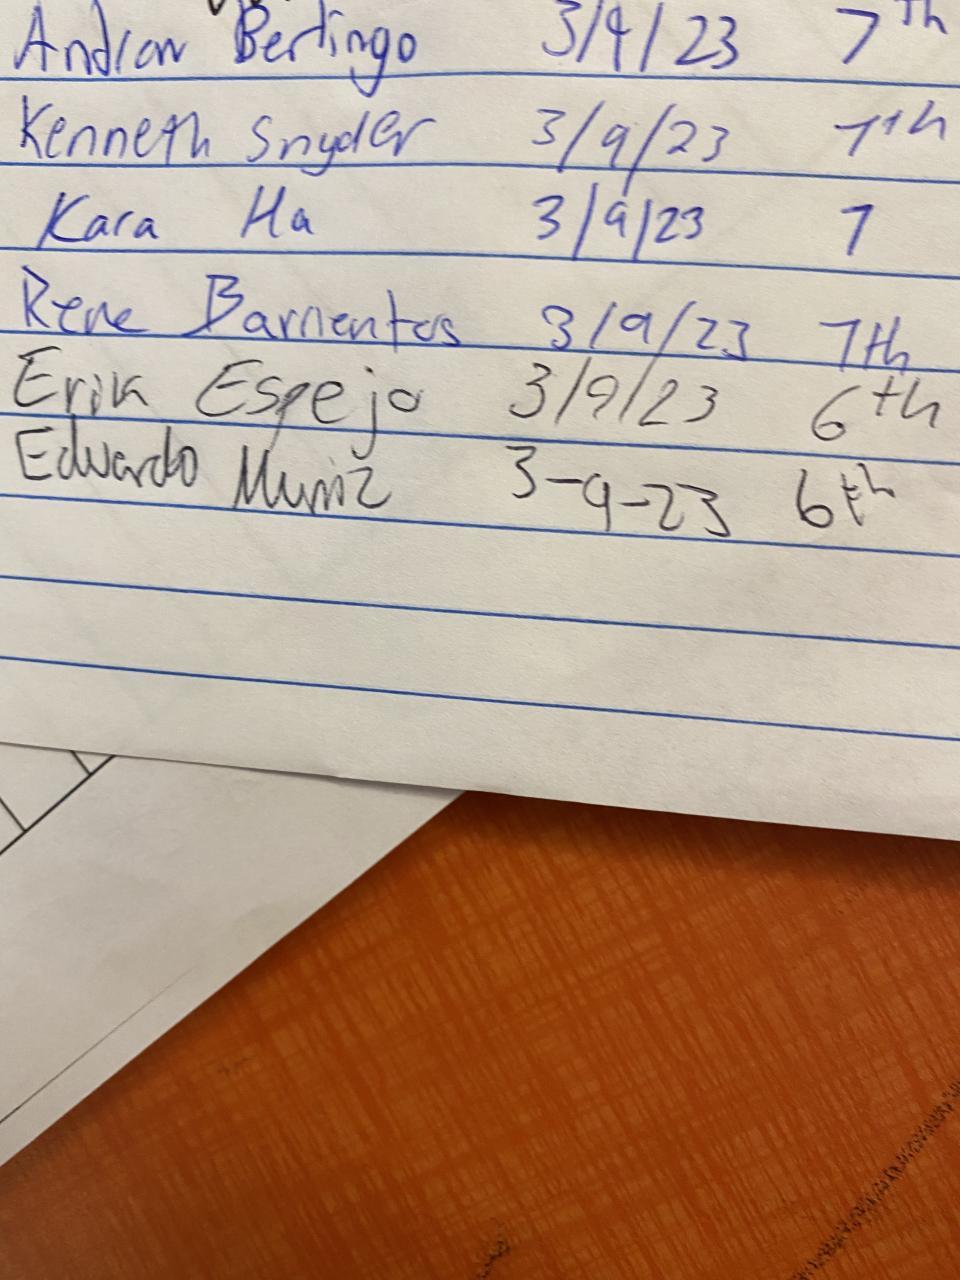 Andrew Bertingo 3/9/23 7th
Kenneth Snyder 3/9/23 7th
Kara Ha 3/9/23 7
Rene Barrientos 3/9/23 7th
Erik Espejo 3/9/23 6th
Eduardo Muniz 3-9-23 6th